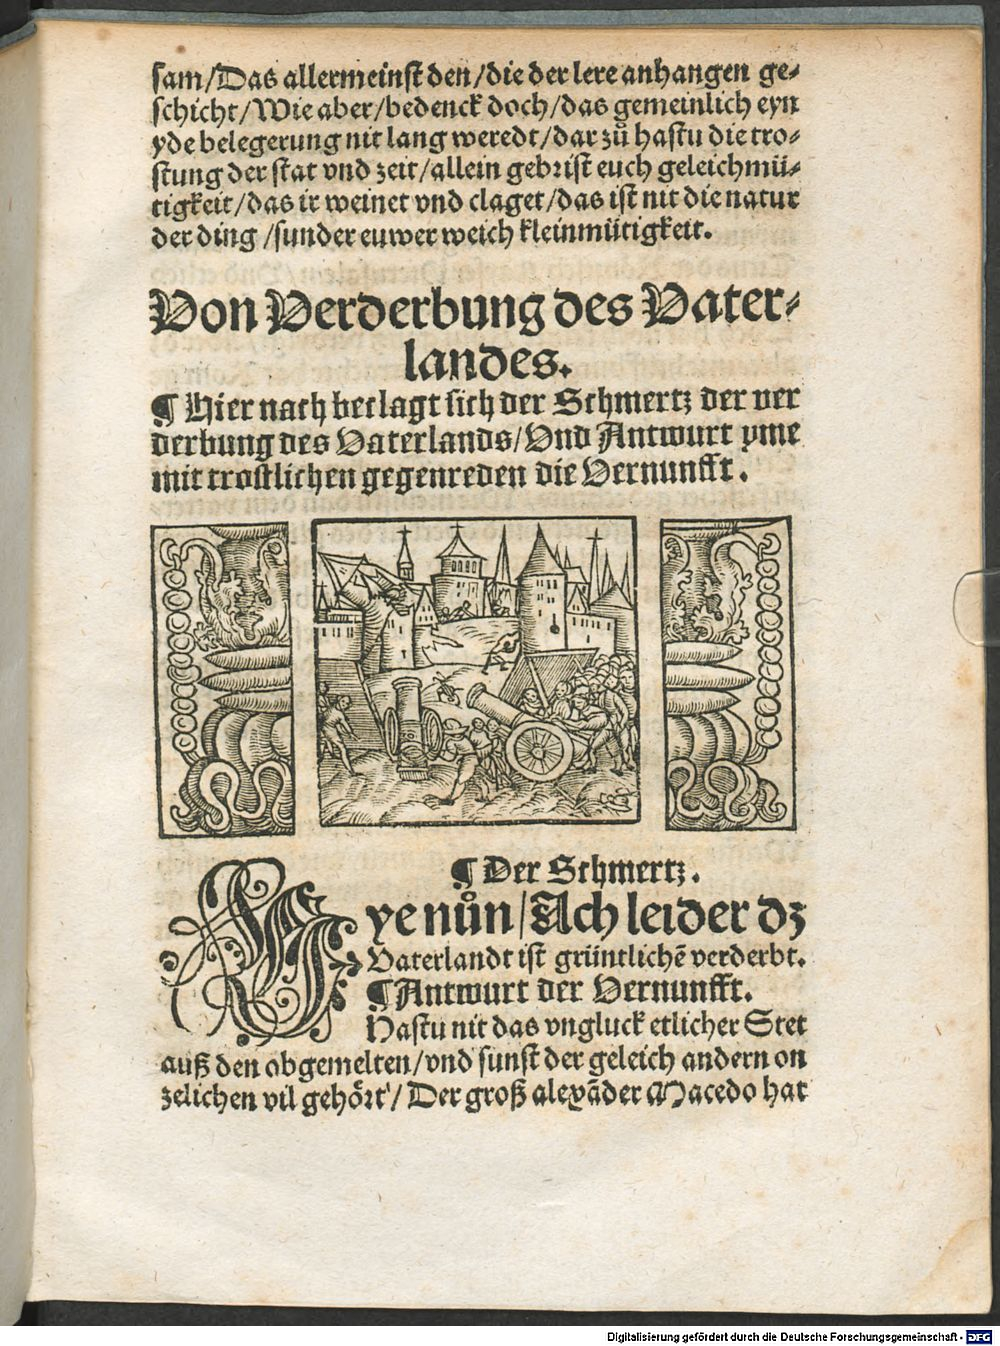 sam/Das allermeinst den/die der lere anhangen ge⸗
schicht/Wie aber/bedenck doch/das gemeinlich eyn
yde belegerung nit lang weredt/dar zů hastu die tro⸗
stung der stat vnd zeit/allein gebrist euch geleichmü⸗
tigkeit/das ir weinet vnd claget/das ist nit die natur
der ding/sunder euwer weich kleinmütigkeit.
Von Verderbung des Vater⸗
landes.
¶ Hier nach beclagt sich der Schmertz der ver
derbung des Vaterlands/Vnd Antwurt yme
mit trostlichen gegenreden die Vernunfft.
¶ Der Schmertz.
Wye nůn/Ach leider dz
Vaterlandt ist grüntlichẽ verderbt.
¶ Antwurt der Vernunfft.
Hastu nit das vngluck etlicher Stet
auß den obgemelten/vnd sunst der geleich andern on
zelichen vil gehört/Der groß alexãder Macedo hat
Digitalisierung gefördert durch die Deutsche Forschungsgemeinschaft - DFG